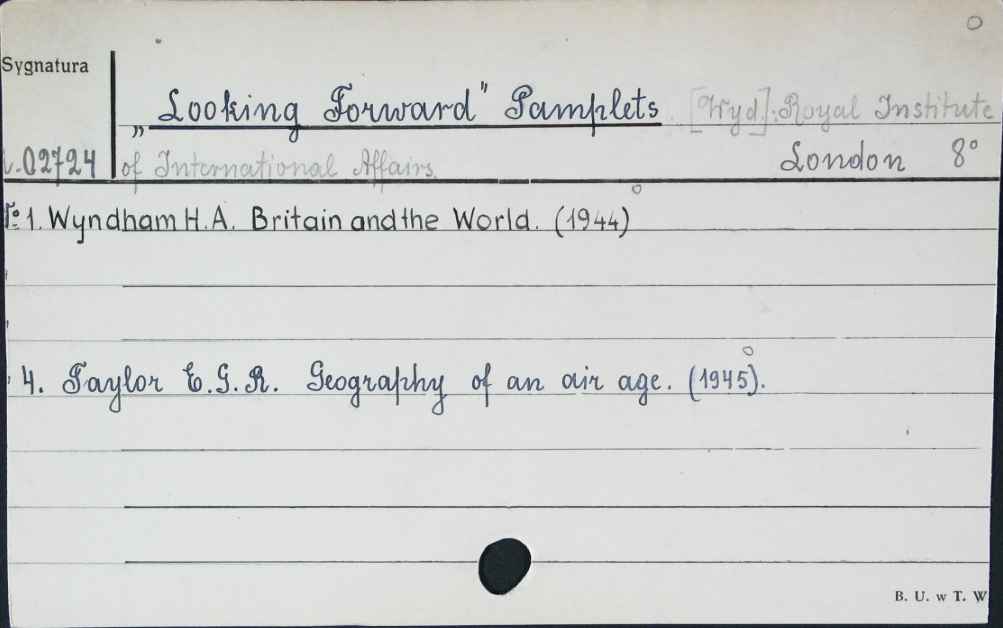 Sygnatura
„Looking Forward” Pamplets. [Wyd]: Royal Institute
02724 of International Affairs. London 8°
№ 1. Wyndham H.A. Britain and the World. (1944)
4. Taylor E.G.R. Geography of an air age. (1945).
B. U. w T. W